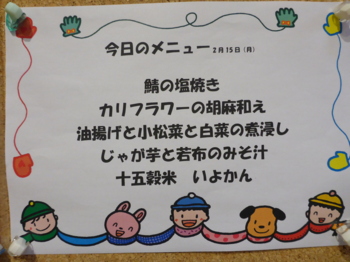 今日のメニュー 2月15日(月)
鯖の塩焼き
カリフラワーの胡麻和え
油揚げと小松菜と白菜の煮浸し
じゃが芋と若布のみそ汁
十五穀米 いよかん